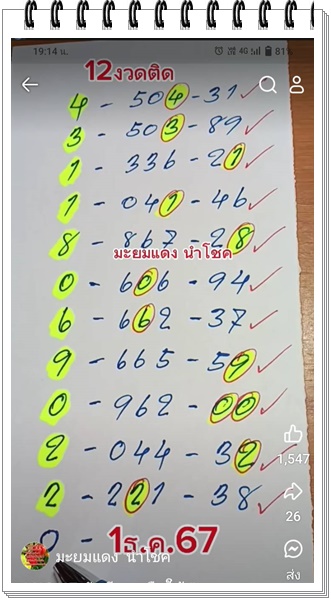 19:14 น.
4G 81%
12งวดติด
4 - 504 - 31 ✓
3 - 503 - 89 ✓
1 - 336 - 21 ✓
1 - 041 - 46 ✓
8 - 867 - 28 ✓
มะยมแดง นำโชค
0 - 606 - 94 ✓
6 - 662 - 37 ✓
9 - 665 - 59 ✓
0 - 962 - 00 ✓
1,547
2 - 044 - 32 ✓
2 - 221 - 38 ✓
26
0 - 1ธ.ค.67
มะยมแดง นำโชค
ส่ง